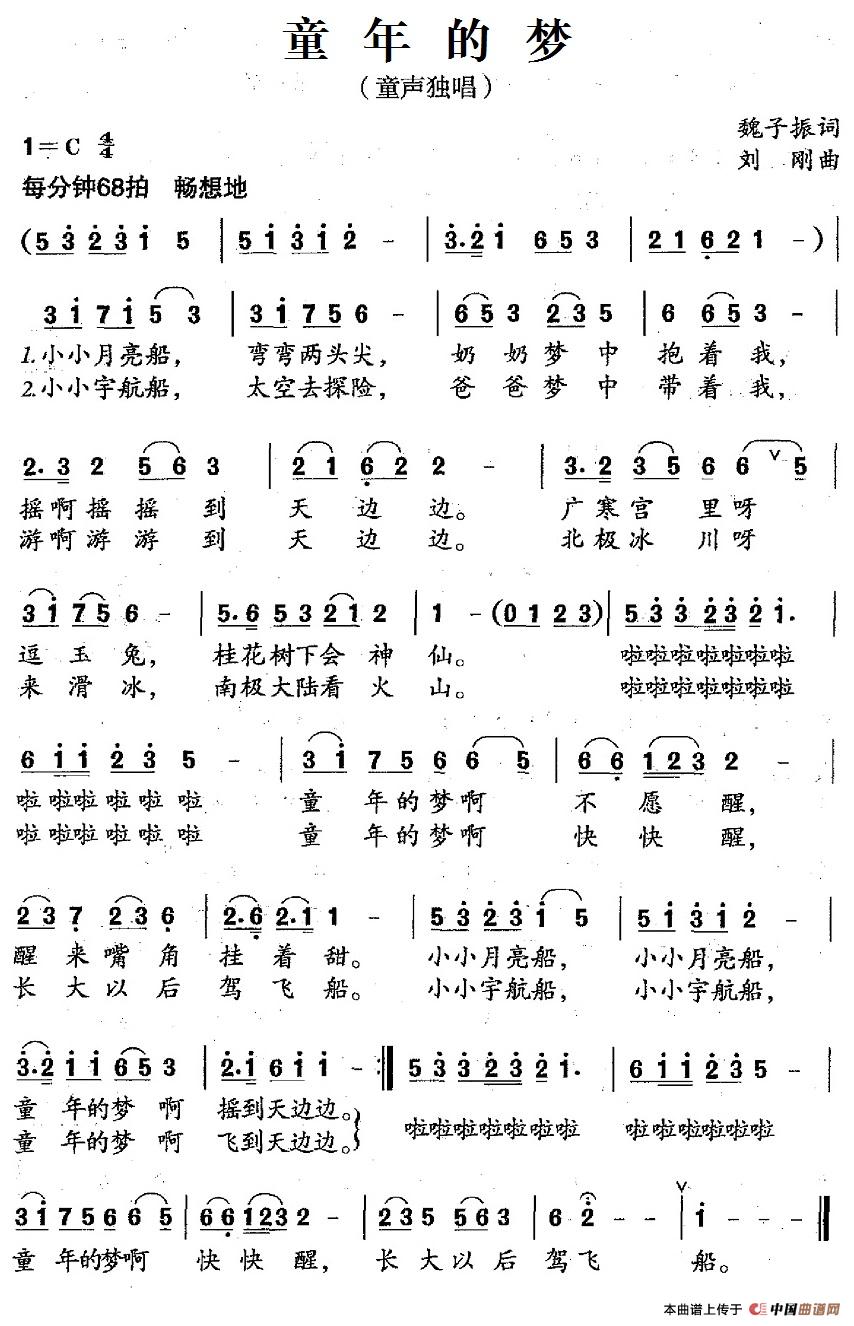 童年的梦
（童声独唱）
魏子振词
1=C 4/4
刘 刚曲
每分钟68拍 畅想地
(5 3 2 3 1 5 | 5 1 3 1 2 - | 3. 2 1 6 5 3 | 2 1 6 2 1 - ) |
3 1 7 1 5 3 | 3 1 7 5 6 - | 6 5 3 2 3 5 | 6 6 5 3 - |
1.小小月亮船, 弯弯两头尖, 奶奶梦中抱着我,
2.小小宇航船, 太空去探险, 爸爸梦中带着我,
2. 3 2 5 6 3 | 2 1 6 2 2 - | 3. 2 3 5 6 6 5 |
摇啊摇摇到 天边边。 广寒宫里呀
游啊游游到 天边边。 北极冰川呀
3 1 7 5 6 - | 5. 6 5 3 2 1 2 | 1 - (0 1 2 3) | 5 3 3 2 3 2 1. |
逗玉兔, 桂花树下会神仙。 啦啦啦啦啦啦啦
来滑冰, 南极大陆看火山。 啦啦啦啦啦啦啦
6 1 1 2 3 5 - | 3 1 7 5 6 6 5 | 6 6 1 2 3 2 - |
啦啦啦啦啦啦 童年的梦啊 不愿醒,
啦啦啦啦啦啦 童年的梦啊 快快醒,
2 3 7 2 3 6 | 2. 6 2. 1 1 - | 5 3 2 3 1 5 | 5 1 3 1 2 - |
醒来嘴角挂着甜。 小小月亮船, 小小月亮船,
长大以后驾飞船。 小小宇航船, 小小宇航船,
3. 2 1 1 6 5 3 | 2. 1 6 1 1 - :| 5 3 3 2 3 2 1. | 6 1 1 2 3 5 - |
童年的梦啊 摇到天边边。
童年的梦啊 飞到天边边。} 啦啦啦啦啦啦啦 啦啦啦啦啦啦
3 1 7 5 6 6 5 | 6 6 1 2 3 2 - | 2 3 5 5 6 3 | 6 2 - - | 1 - - - ‖
童年的梦啊 快快醒, 长大以后驾飞船。
本曲谱上传于 中国曲谱网